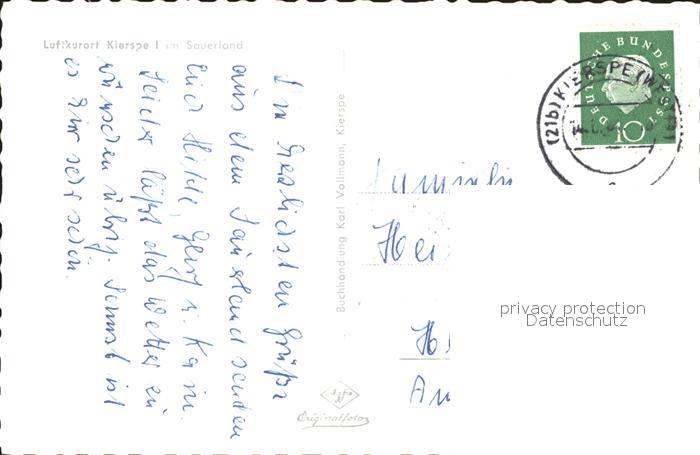 Luftkurort Kierspe I im Sauerland
Die herzlichsten Grüße
aus dem Sauerland senden
Euch Hilde, Gerd u. Karin.
Leider läßt das Wetter zu
wünschen übrig. Sonst ist
es hier sehr schön.
Buchhandlung Karl Vollmann, Kierspe
Agfa
Originalfoto
DEUTSCHE BUNDESPOST
10
(21b) KIERSPE (WESTF)
Familie
Hei
H
Am
privacy protection
Datenschutz